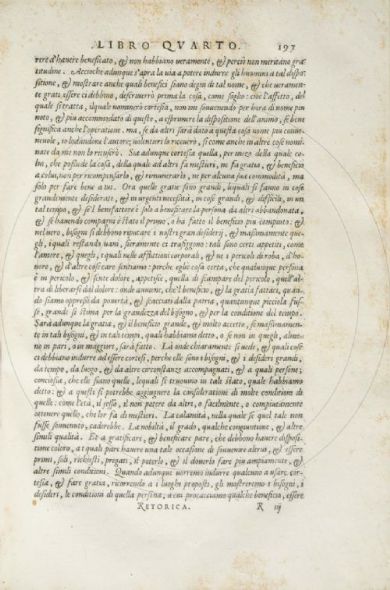 LIBRO QVARTO. 197
rere d'hauere beneficato, & non habbiano ueramente, & perciò non meritano gra
titudine. Accioche adunque s'apra la uia a potere indurre gli huomini a tal dispo
sitione, & mostrare anche quali benefici siano degni di tal nome, & che ueramen-
te gratia essere ci debbino, descriuerrò prima la cosa, come soglio: che l'affetto, del
quale si tratta, ilquale nominerò cortesia, non mi souuenendo per hora di nome piu
noto, & piu accommodato di questo, a esprimere la dispositione dell'animo, se bene
significa anche l'operatione. ma, se da altri sarà dato a questa cosa nome piu conue-
neuole, io lodandone l'autore, uolentieri lo riceuerò, si come anche in altre cose nomi-
nate da me non lo ricuserò. Sia adunque cortesia quella, per mezo della quale co-
lui, che possiede la cosa, della quale ad altri fa mestieri, ne fa gratia, & beneficio
a colui, non per ricompensarlo, & remunerarlo, ne per alcuna sua commodità, ma
solo per fare bene a lui. Ora quelle gratie sono grandi, lequali si fanno in cose
grandemente desiderate, & in urgenti necessità, in cose grandi, & difficili, in un
tal tempo, & se'l benefattore è solo a beneficare la persona da altri abbandonata,
& se hauendo compagni è stato il primo, o ha fatto il beneficio piu compiuto: &
nel uero, bisogni si debbono riputare i nostri gran desiderij. & massimamente que-
gli, i quali restando uani, fieramente ci trafiggono: tali sono certi appetiti, come
l'amore, & quegli, i quali nelle afflittioni corporali, & ne i pericoli di roba, d'ho-
nore, & d'altre cose care sentiamo: perche egli è cosa certa, che qualunque persona
è in pericolo, & sente dolore, appetisce, quella di scampare del pericolo, quest'al-
tra di liberarsi dal dolore: onde auuiene, che'l beneficio, & la gratia fattaci, quan-
do siamo oppressi da pouertà, & scacciati dalla patria, quantunque picciola fus-
se, grande si stima per la grandezza del bisogno, & per la condition del tempo.
Sarà adunque la gratia, & il beneficio grande, & molto accetto, se massimamen-
te in tali bisogni, & in tali tempi, quali habbiamo detto, o se non in quegli, alme-
no in pari, o in maggiori, sarà fatto. Là onde chiaramente si uede, & quali cose
ci debbiano indurre ad essere cortesi, perche elle sono i bisogni, & i desideri grandi,
da tempo, da luogo, & da altre circonstanze accompagnati, & a quali persone;
conciosia, che elle siano quelle, lequali si truouino in tale stato, quale habbiamo
detto: & a queste si potrebbe aggiugnere la consideratione di molte conditioni di
quelle: come l'età, il sesso, il non potere da altri, o facilmente, o compiutamente
ottenere quello, che lor fa di mestieri. La calamità, nella quale se quel tale non
fusse souuenuto, caderebbe. La nobiltà, il grado, qualche congiuntione, & altre
simili qualità. Et a gratificare, & beneficare pare, che debbono hauere disposi-
tione coloro, a i quali pare hauere una tale occasione di souuenire altrui, & essere
primi, soli, richiesti, pregati, il poterlo, & il douerlo fare piu ampiamente, &
altre simili conditioni. Quando adunque uorremo indurre qualcuno a usare cor-
tesia, & fare gratia, ricorrendo a i luoghi proposti, gli mostreremo i bisogni, i
desideri, le conditioni di quella persona; a cui procacciamo qualche beneficio, essere
RETORICA. R iij